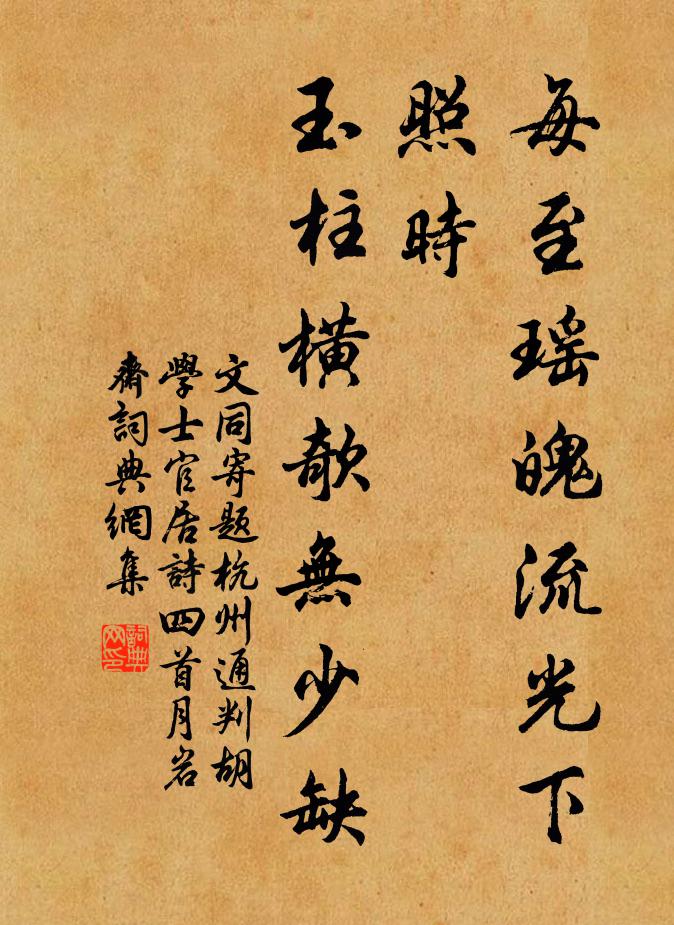 每至瑶魄流光下
照時
玉柱橫欹無少缺
文同寄題杭州通判胡
學士官居詩四首月岩
齋詞典網集
詞典
网印